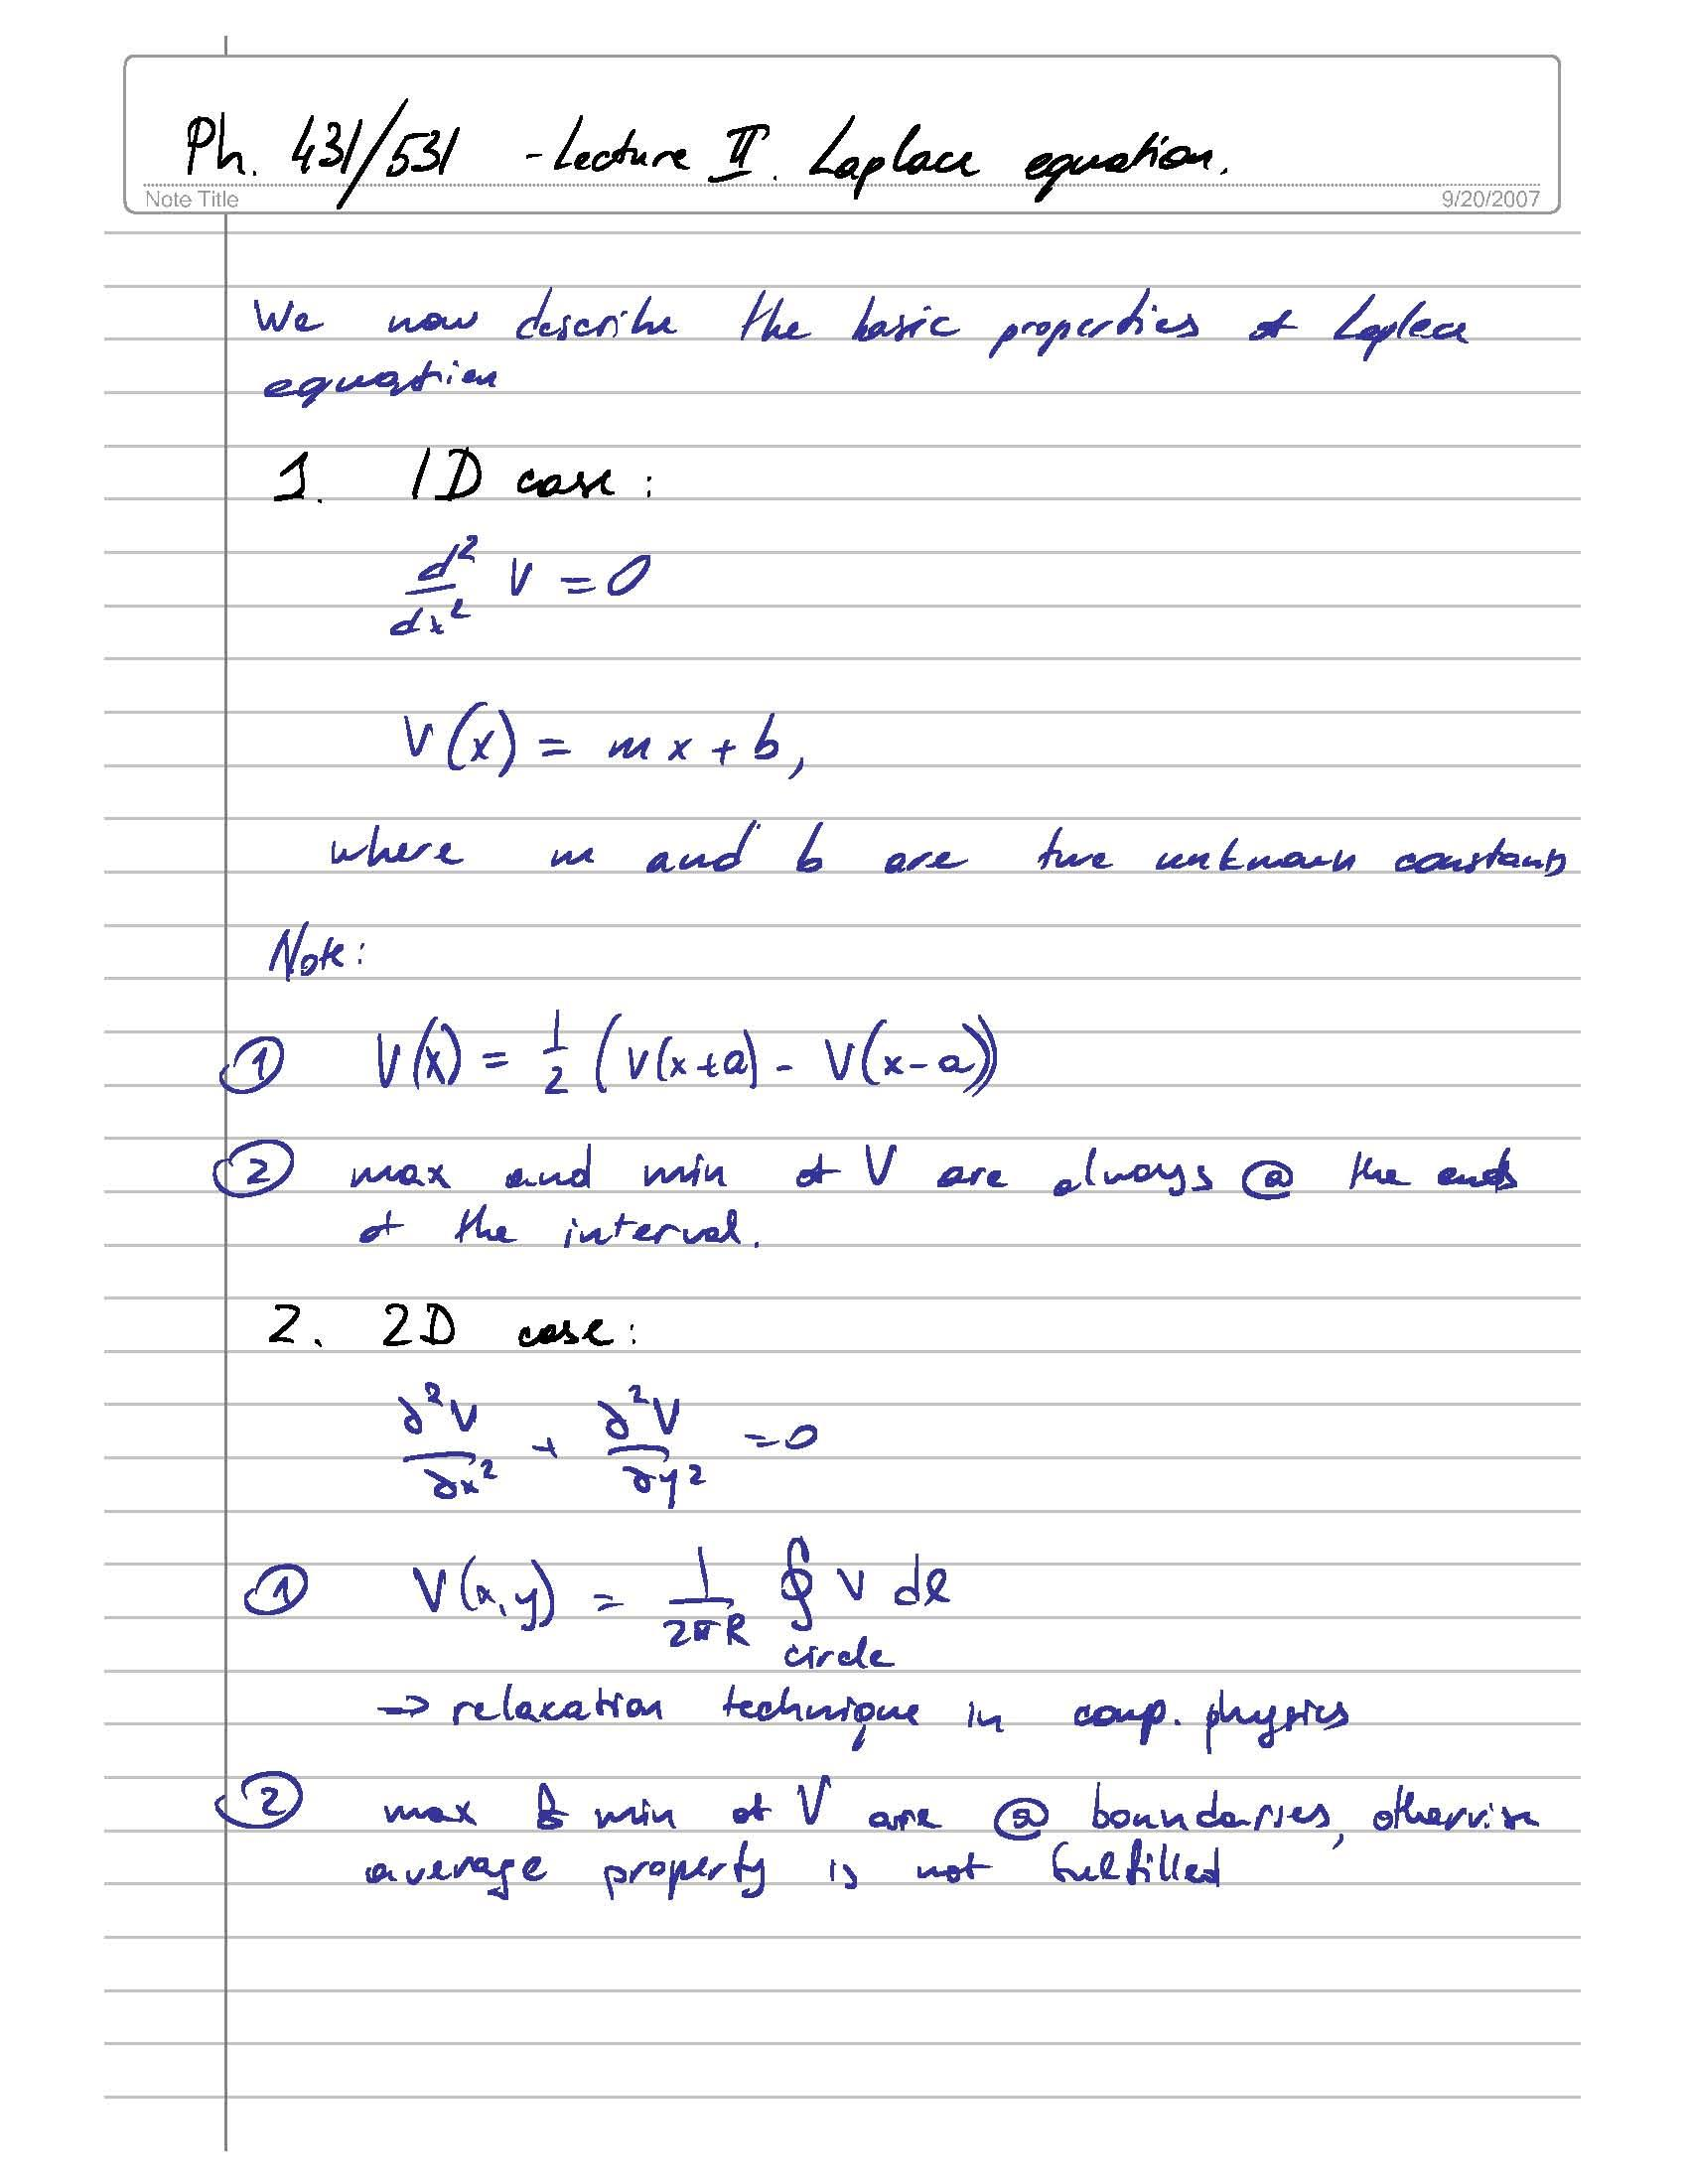 Ph. 431/531 - Lecture II. Laplace equation.
Note Title 9/20/2007
We now describe the basic properties of Laplace
equation
1. 1D case:
d²/dx² V = 0
V(x) = mx + b,
where m and b are two unknown constants
Note:
① V(x) = 1/2 (V(x+a) - V(x-a))
② max and min of V are always @ the ends
of the interval.
2. 2D case:
∂²V/∂x² + ∂²V/∂y² = 0
① V(x,y) = 1/2πR ∮ V dl
circle
→ relaxation technique in comp. physics
② max & min of V are @ boundaries, otherwise
average property is not fulfilled